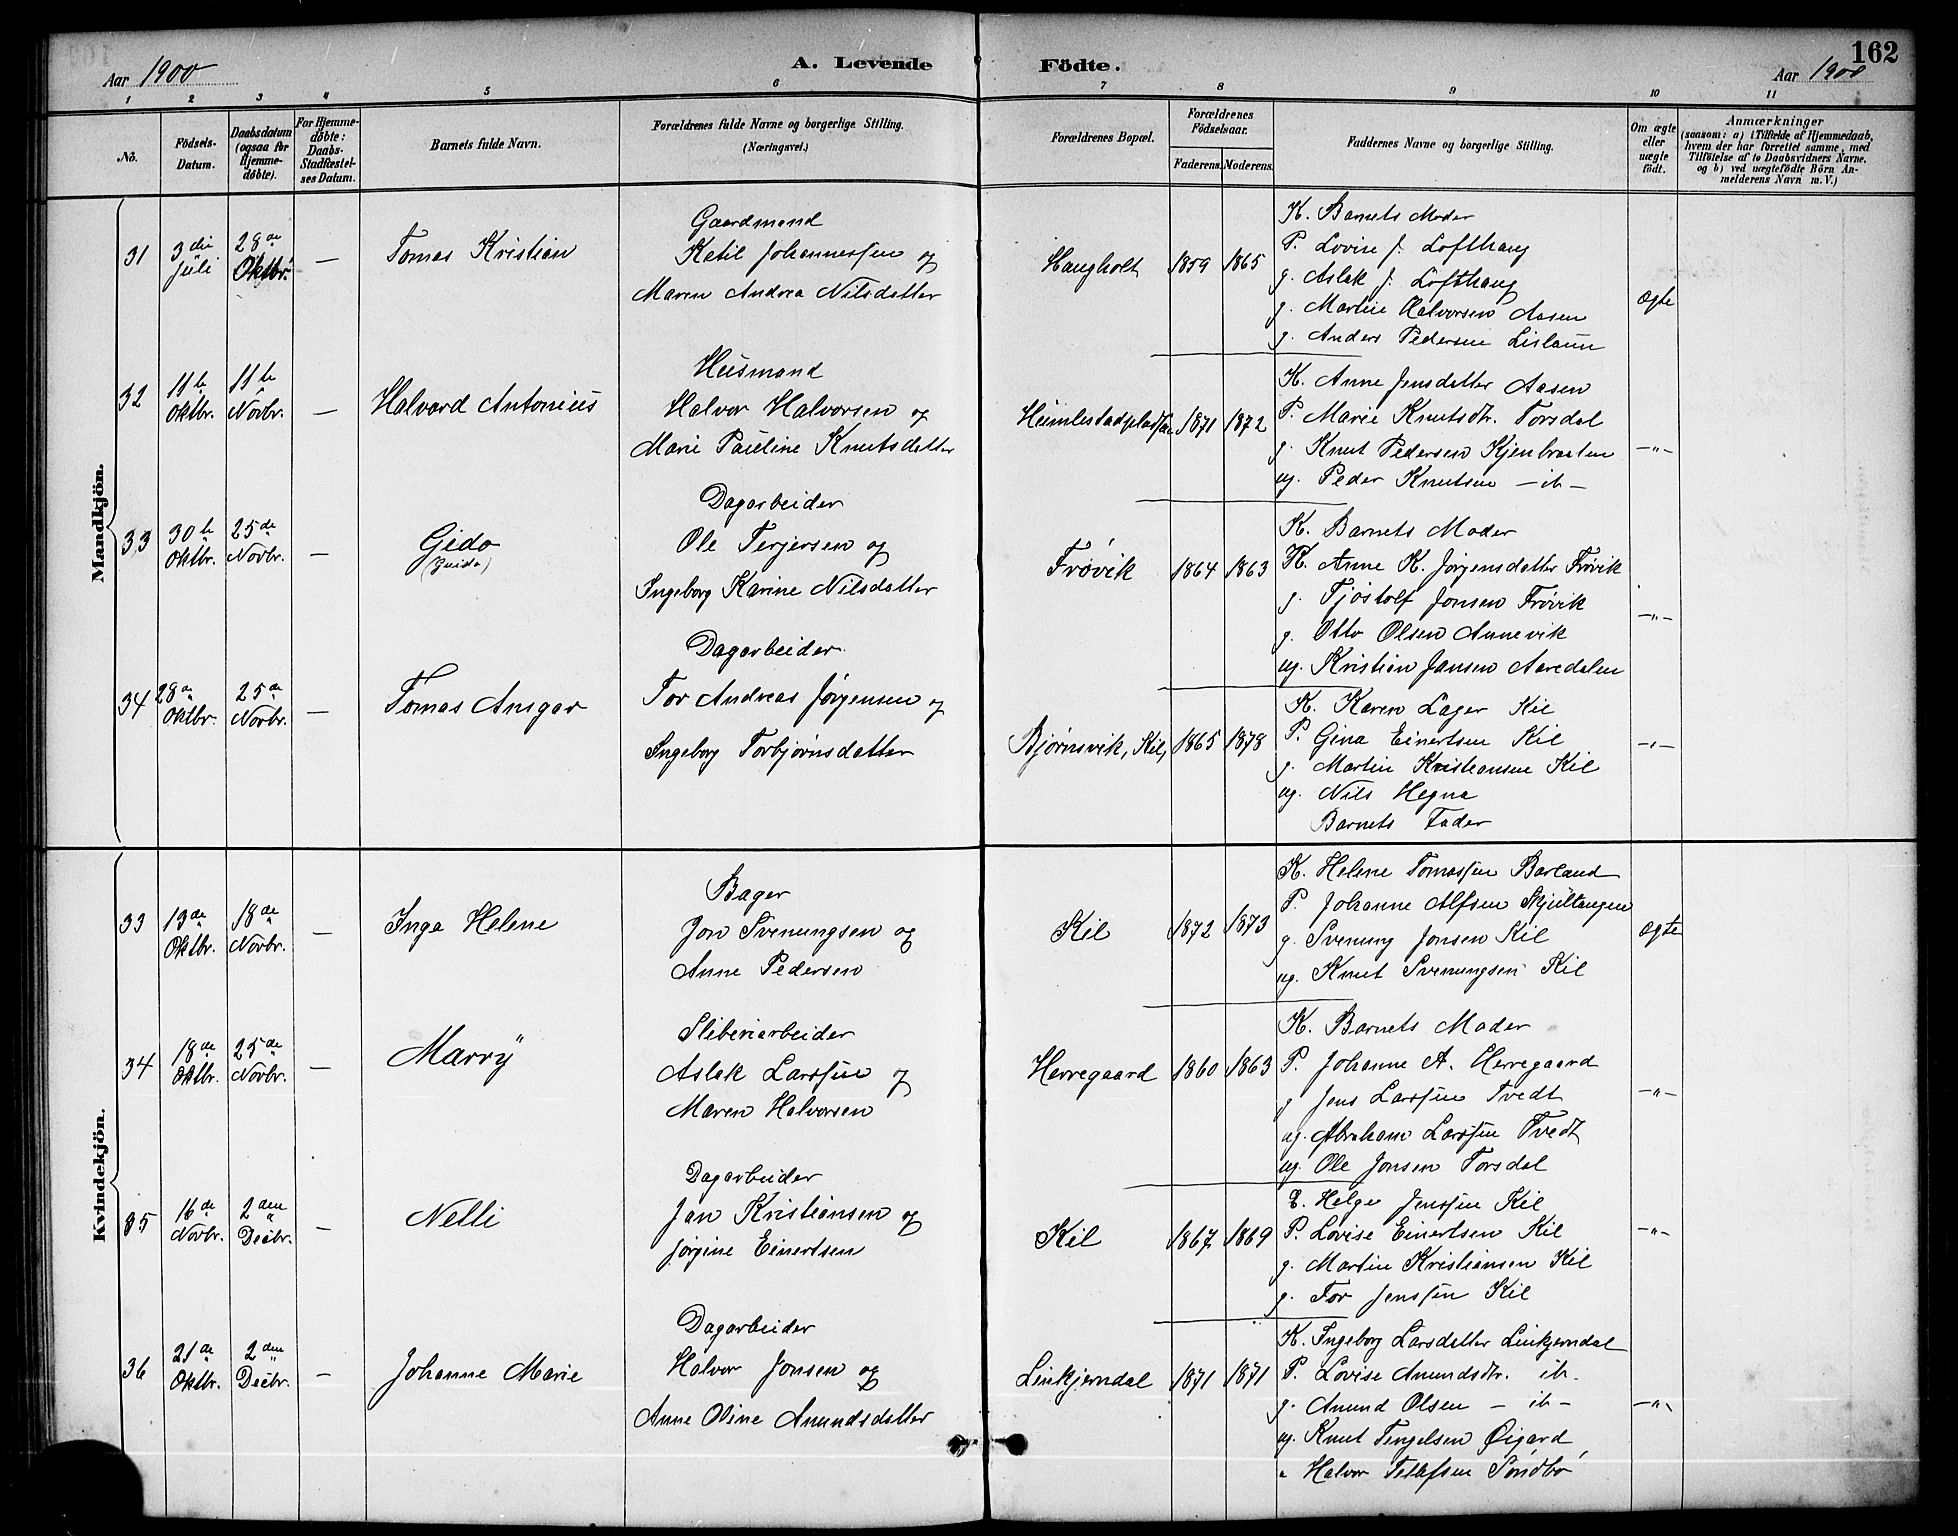 162
Aar 1900
A. Levende
Födte.
Aar 1900
1 2 3 4 5 6 7 8 9 10 11
No.
Födsels-Datum.
Daabsdatum (ogsaa for Hjemme-döbte).
For Hjemme-döbte: Daabs-Stadfæstel-ses Datum.
Barnets fulde Navn.
Forældrenes fulde Navne og borgerlige Stilling.
(Næringsvei.)
Forældrenes Bopæl.
Forældrenes Födselsaar.
Faderens. Moderens.
Faddernes Navne og borgerlige Stilling.
Om ægte eller uægte födt.
Anmærkninger
(saasom: a) i Tilfælde af Hjemmedaab,
hvem der har forrettet samme, med
Tilföielse af to Daabsvidners Navne.
og b) ved uægtefödte Börn An-
melderens Navn m. V.)
Mandkjön.
31
3die Juli
28de Oktbr.
—
Tomas Kristian
Gaardmand
Ketil Johannessen og
Maren Andrea Nilsdatter
Haugholt
1859 1865
K. Barnets Moder
P. Lovise J. Lofthaug
g. Aslak J. Lofthaug
g. Martin Halvorsen Aasen
g. Anders Pedersen Lislaun
Ægte
32
11te Oktbr.
11te Novbr.
—
Halvard Antonius
Husmand
Halvor Halvorsen og
Marie Pauline Knutsdatter
Humlestadpladsen
1871 1872
K. Anne Jensdatter Aasen
P. Marie Knutsdtr. Torsdal
g. Knut Pedersen Kjenbraaten
ug. Peder Knutsen — ib —
—„—
33
30te Oktbr.
25de Novbr.
—
Gido
(Guido)
Dagarbeider
Ole Terjersen og
Ingeborg Karine Nilsdatter
Frövik
1864 1863
K. Barnets Moder
K. Anne K. Jörgensdatter Frövik
g. Tjöstolf Jonsen Frövik
g. Otto Olsen Annevik
ug. Kristian Jansen Aaredalen
—„—
34
28de Oktbr.
25de Novbr.
—
Tomas Ansgar
Dagarbeider
Tor Andreas Jörgensen og
Ingeborg Torbjörnsdatter
Björnsvik, Kil,
1865 1878
K. Karen Lager Kil
P. Gina Einertsen Kil
g. Martin Kristiansen Kil
ug. Nils Hegna
Barnets Fader
—„—
Kvindekjön.
33
13de Oktbr.
18de Novbr.
—
Inga Helene
Bager
Jon Svenungsen og
Anne Pedersen
Kil
1872 1873
K. Helene Tomassen Barland
P. Johanne Alfsen Skjultangen
g. Svenung Jonsen Kil
ug. Knut Svenungsen Kil
Ægte
34
18de Oktbr.
25de Novbr.
—
Marry
Sliberiarbeider
Aslak Larssen og
Maren Halvorsen
Herregaard
1860 1863
K. Barnets Moder
P. Johanne A. Herregaard
g Jens Larssen Tvedt
ug. Abraham Larssen Tvedt
ug. Ole Jonsen Torsdal
—„—
35
16de Novbr.
2den Decbr.
—
Nelli
Dagarbeider
Jan Kristiansen og
Jörgine Einertsen
Kil
1867 1869
E. Helge Jenssen Kil
P. Lovise Einertsen Kil
g. Martin Kristiansen Kil
g. Tor Jenssen Kil
—„—
36
21de Oktbr.
2den Decbr.
—
Johanne Marie
Dagarbeider
Halvor Jonsen og
Anne Oline Anundsdatter
Linkjerndal
1871 1871
K. Ingeborg Larsdatter Linkjerndal
P. Lovise Anundsdtr. ib.
g. Anund Olsen — ib —
ug. Knut Tengelsen Öigard
„ Halvor Tellefsen Sundbö
—„—